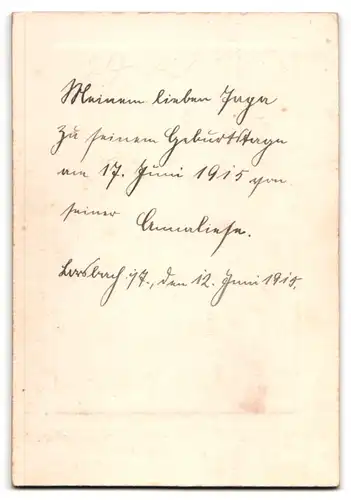 Meinem lieben Papa
zu seinem Geburtstage
am 17. Juni 1915 von
seiner Annaliese.
Lorsbach i/T., den 12. Juni 1915.